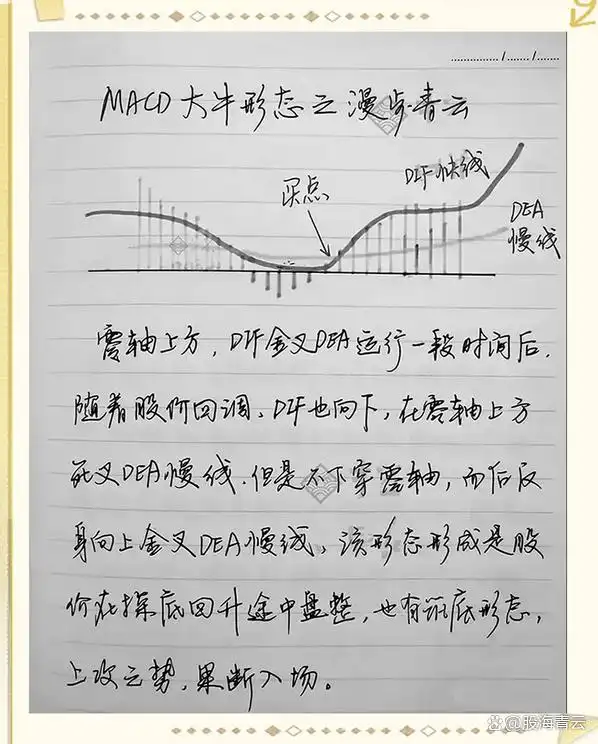 MACD大牛形态之漫步青云
买点
DIF快线
DEA
慢线
零轴上方，DIF金叉DEA运行一段时间后，
随着股价回调、DIF也向下，在零轴上方
死叉DEA慢线．但是不下穿零轴，而后反
身向上金叉DEA慢线，该形态形成是股
价在探底回升途中盘整，也有筑底形态，
上攻之势，果断入场。
@股海青云